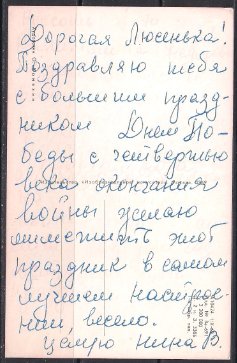 Дорогая Люсенька!
Поздравляю тебя
с большим празд-
ником Днем По-
беды с четвертью
века окончания
войны желаю
этот
праздник в самом
лучшем настрое-
нии, весело.
Целую Нина В.